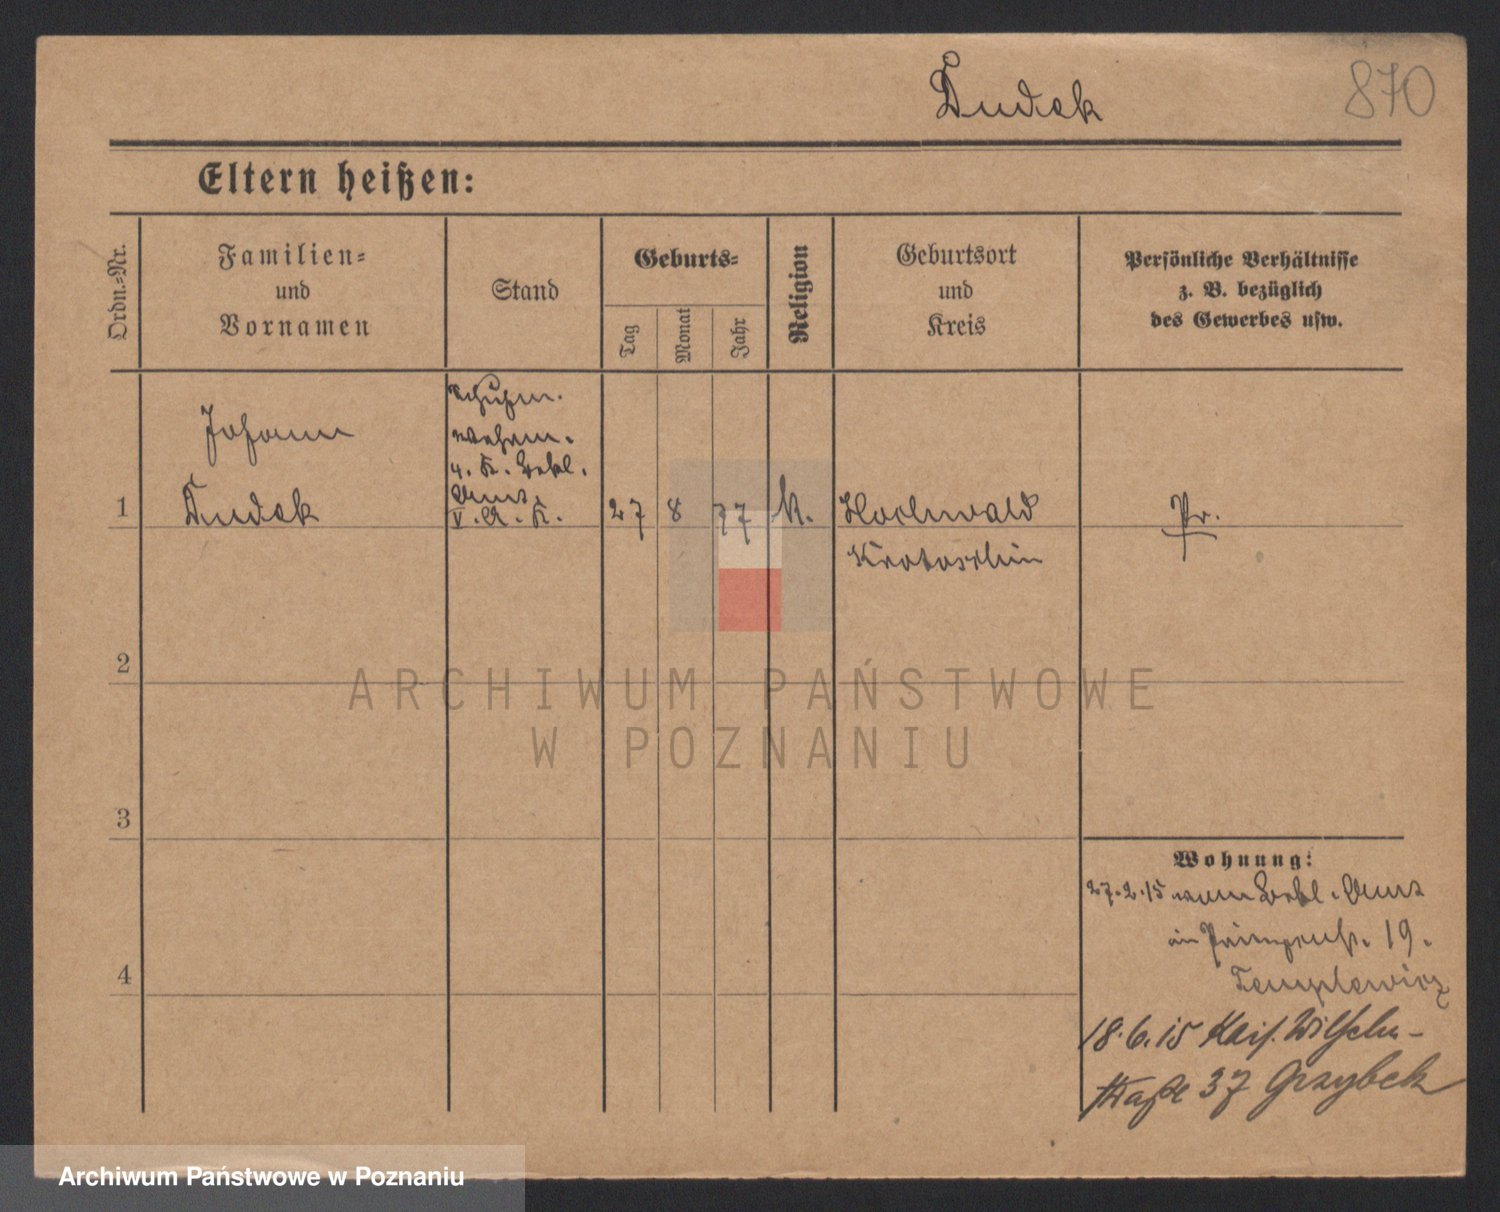 Dudek
870
Eltern heißen:
Ordn.=Nr.
Familien=
und
Vornamen
Stand
Geburts=
Tag
Monat
Jahr
Religion
Geburtsort
und
Kreis
Persönliche Verhältnisse
z. B. bezüglich
des Gewerbes usw.
Johann
Dudek
u. K. Bekl.
Amt.
V. A. K.
1
27 8 77 k.
Hochwald
Krotoschin
Pr.
2
3
4
Wohnung:
27.2.15 vom Bekl. Amt
19.
Templewicz
18.6.15 Kais. Wilhelm-
straße 37 Grzybek
ARCHIWUM PAŃSTWOWE
W POZNANIU
Archiwum Państwowe w Poznaniu